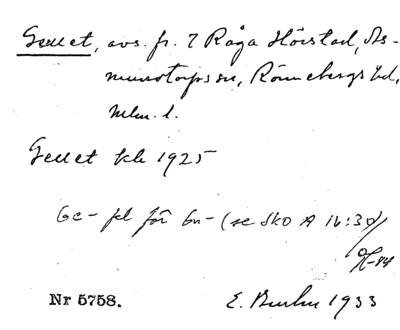 Genet, avs. fr. 7 Råga Hörstad, As-
mundtorps sn, Rönnebergs hd,
Mlm. l.
Genet kk 1925
Ge- fel för Gu- (se SkO A 16:30)
Nr 5758. E. 1933